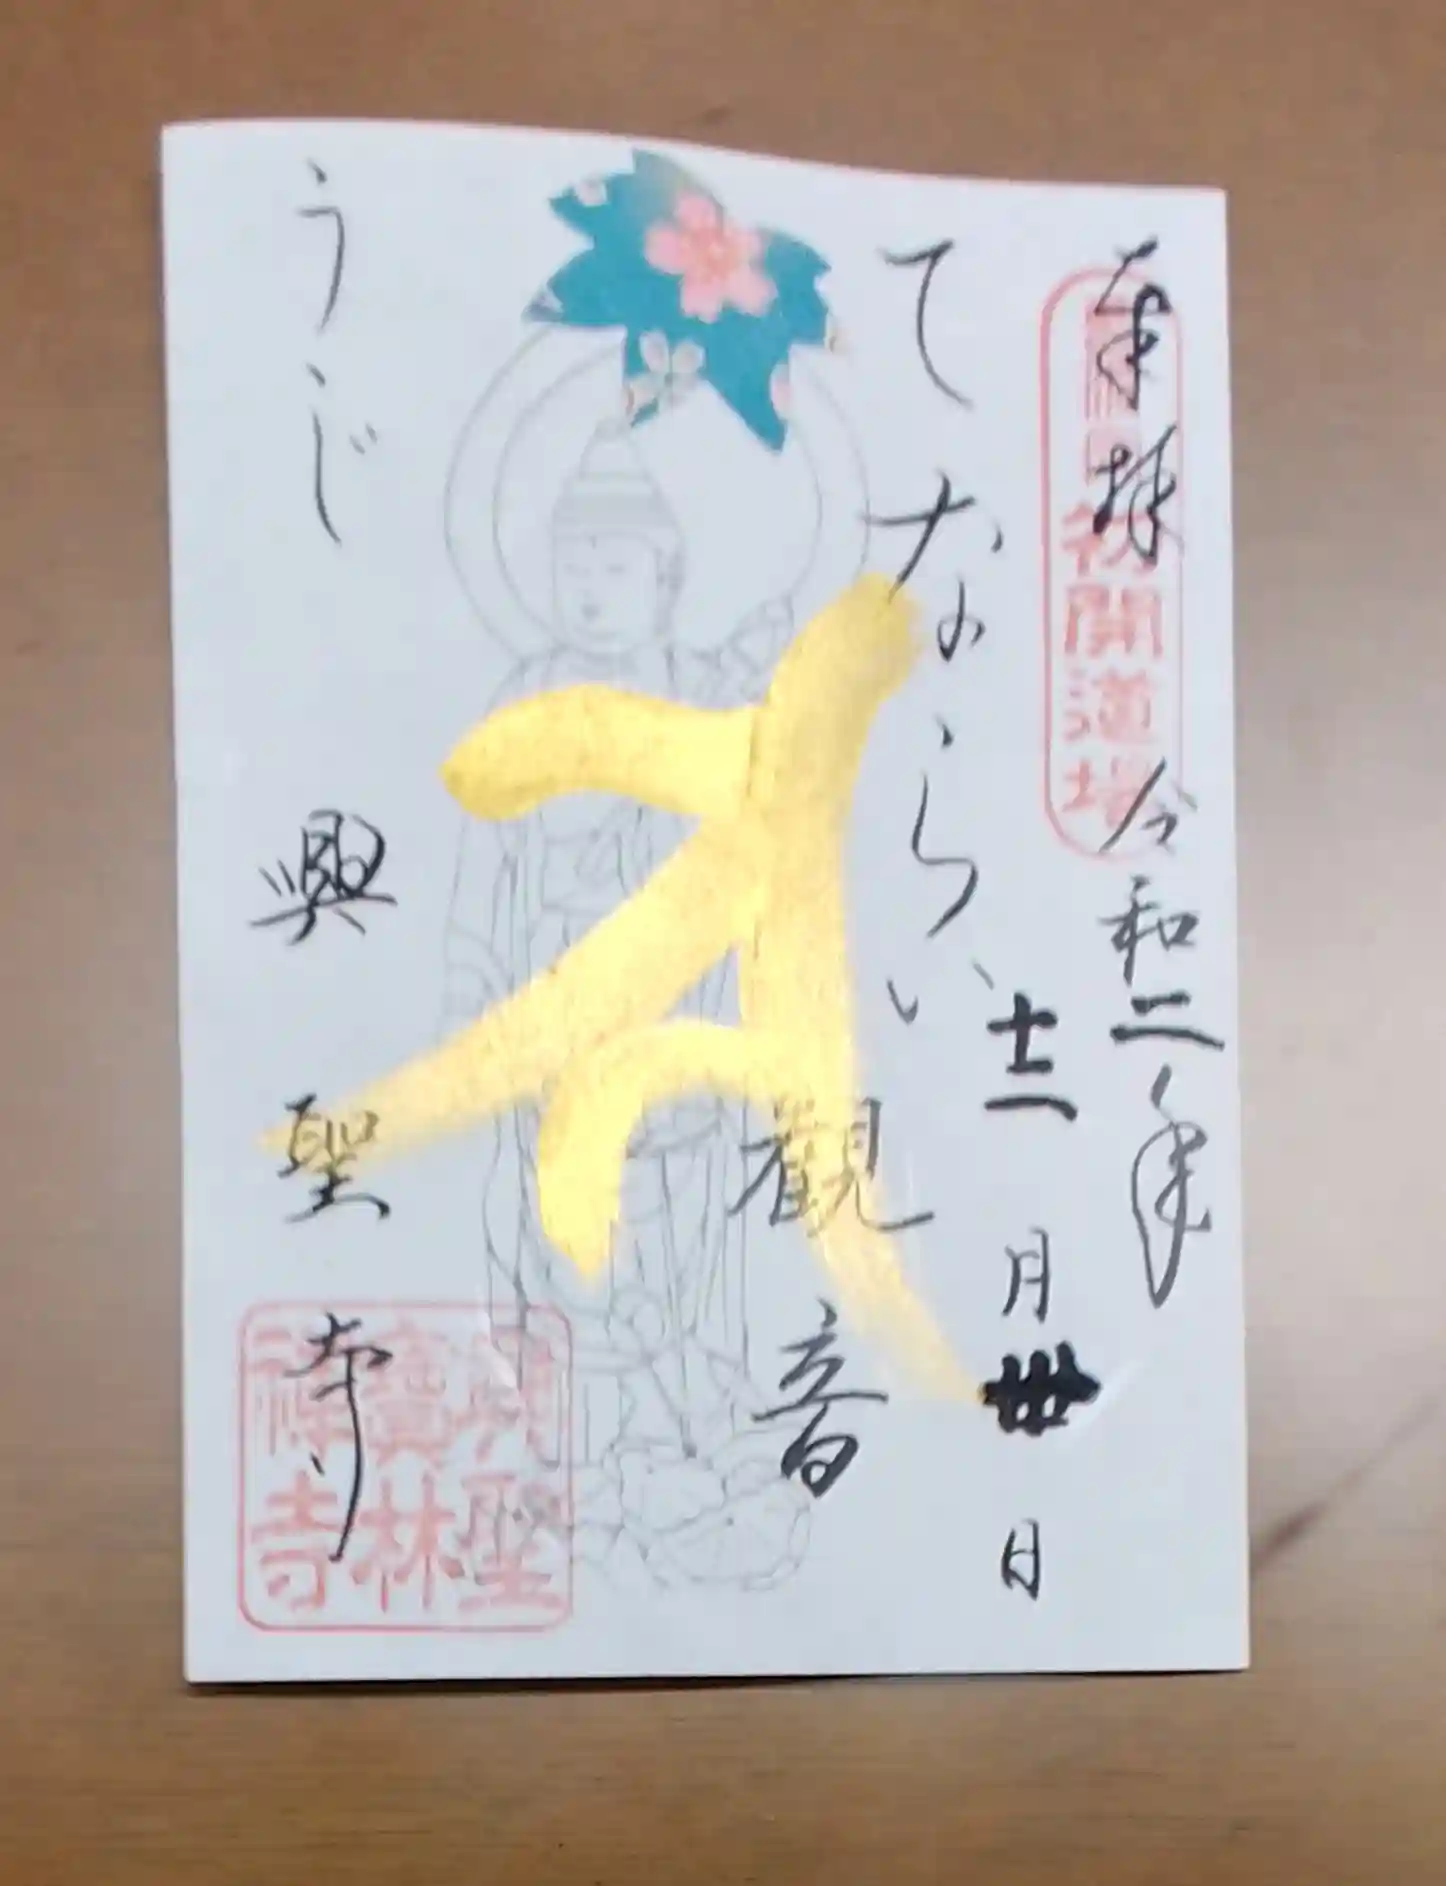 奉拝 令和二年
初開道場
十二月卅日
てならい
観音
うじ
興聖寺
興聖
寶林
禅寺